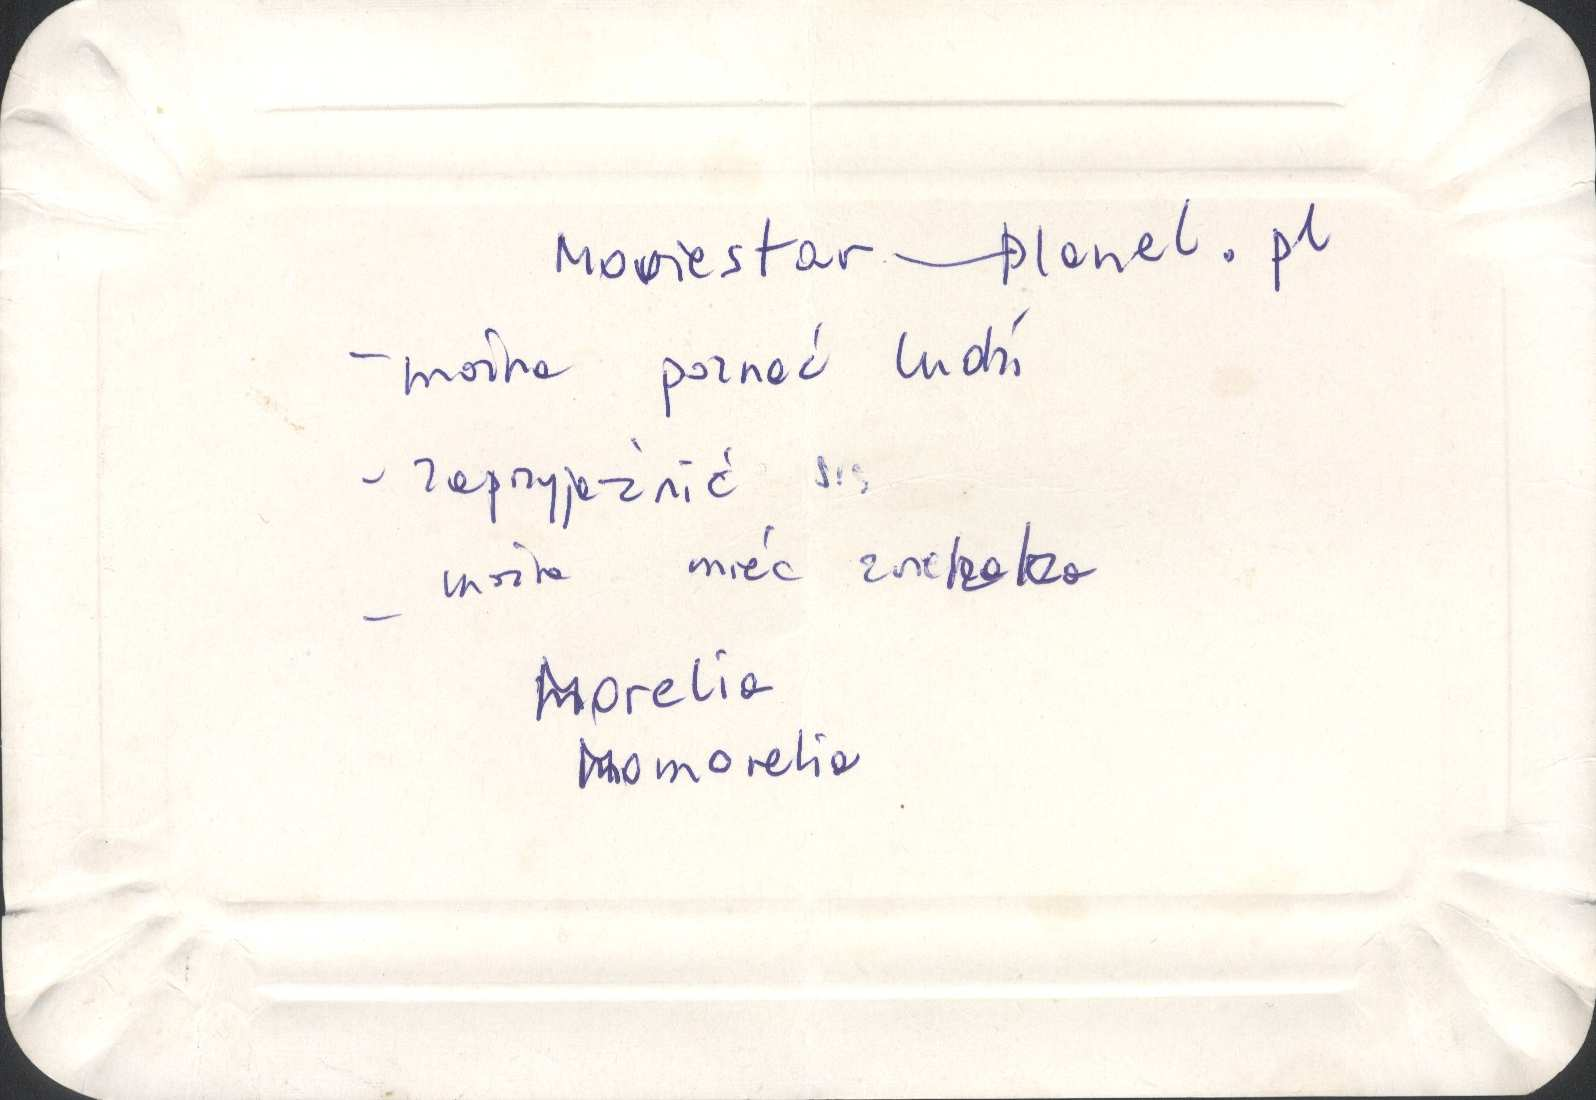 Moviestar—planet.pl
- można poznać ludzi
- zaprzyjaźnić się
- można mieć
Morelia
Momorelia